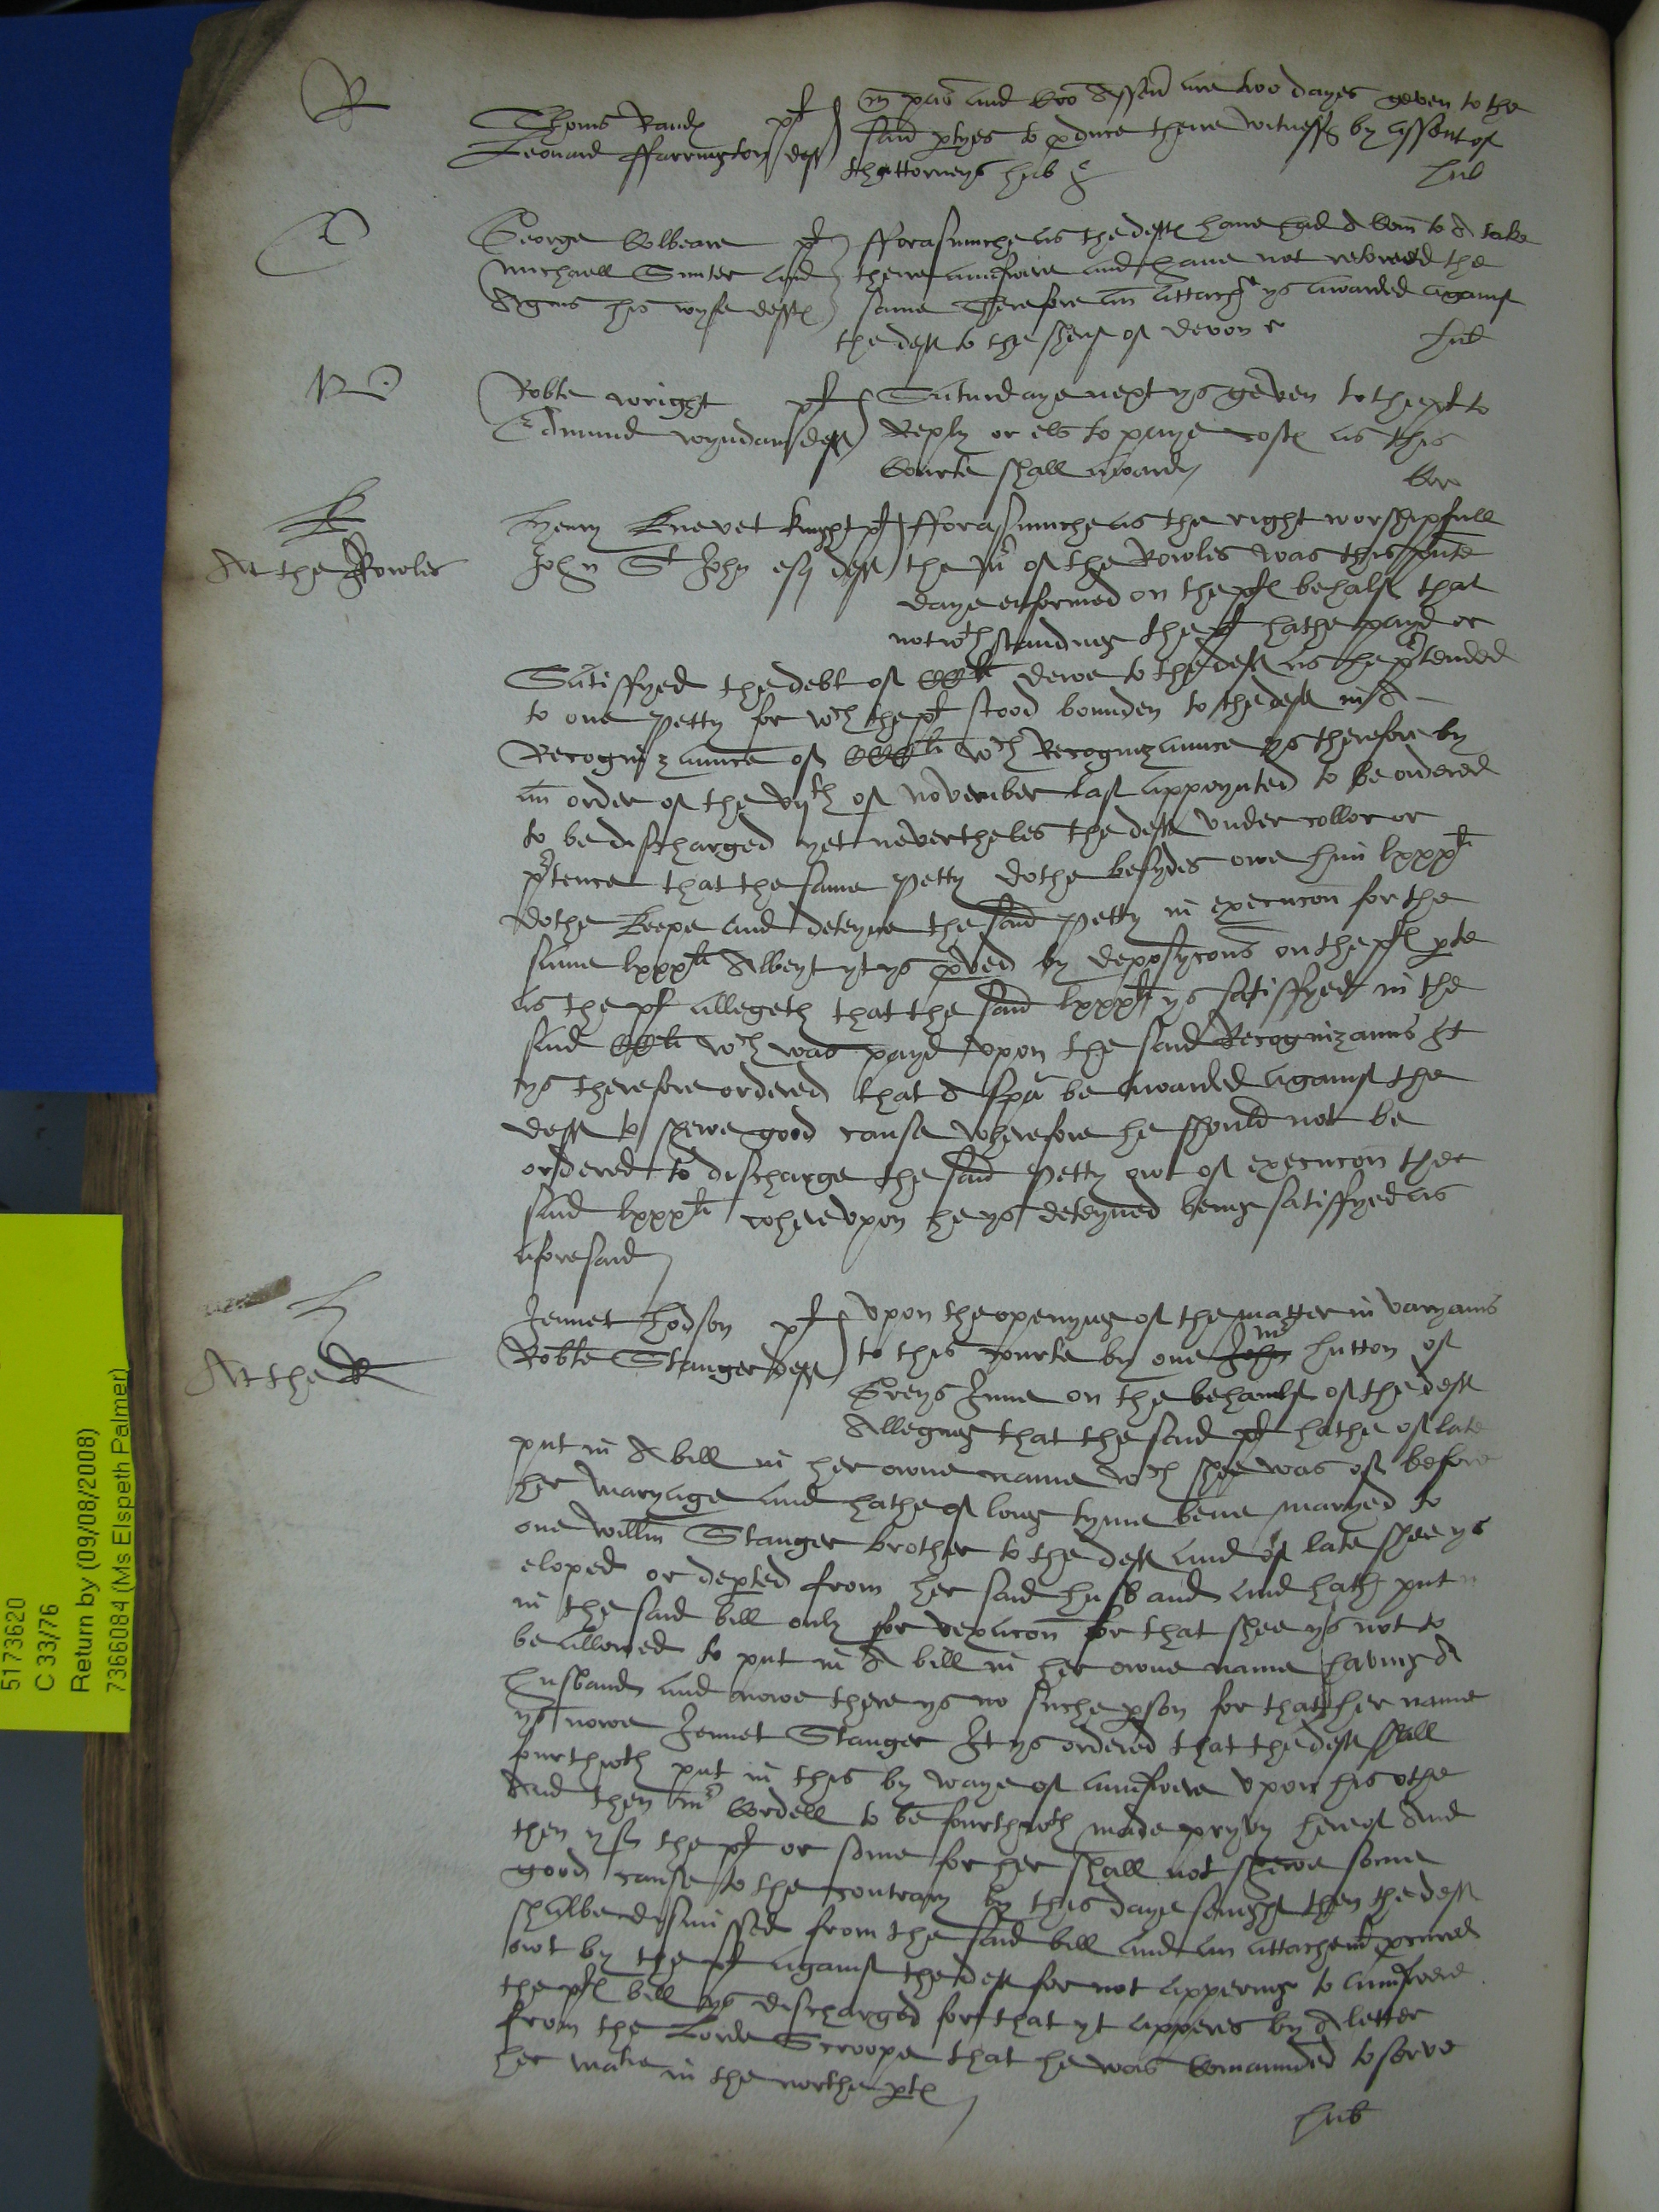 R
Thoms Raud pl
Leonard ffarrington def
in and are two dayes geven to the
said ptyes to pduce there witness by assent of
thattorneys hub
hub
C
George Colbeare pl
Michaell Sunter and
Agnes his wyfe deft
fforasmuche as the deft have had A Com to A take
there aunswere and have not retorned the
same Therefore an attach ys awarded against
the def to the sherif of devon
hub
W
Robte wright pl
Edmund wyndam def
Saturdaye next ys geven to the pl to
Reply or els to paye costs as this
Courte shall award
Cor
K
At the Rowles
Henry Knevet knyght pl
John St John esq def
fforasmuche as the right worshipfull
the Mr of the Rowles was this pnte
daye enformed on the pls behalf that
notwthstanding the pl hathe payd or
Satisfyed the debt of CCli dewe to the def as he ptended
to one Petty for wch the pl stood bounden to the def in A
Recognizaunce of CCCli wch Recognizaunce ys therefore by
an order of the vijth of November last appoynted to be ordered
to be discharged yet nevertheles the def under collor or
ptence that the same Petty dothe besydes owe him lxxxli
dothe keepe and deteyne the said Petty in execucon for the
same lxxxli Albeyt yt ys pved by deposycons on the pls pte
as the pl allegeth that the said lxxxli ys satisfyed in the
said CCli wch was payd upon the said Recognizauns It
ys therefore ordered that A spa be awarded against the
def to shewe good cause wherefore he should not be
ordered to discharge the said Petty owt of execucon the
said lxxxli whereupon he ys deteyned being satisfyed as
aforesaid
H
At the R
Jennet Hodson pl
Robte Stanger def
Upon the openyng of the matter in varyauns
to this courte by one John mr hutton of
Greys Inne on the behaulf of the def
Alleging that the said pl hathe of late
put in A bill in her owne name wch shee was of before
her maryage and hathe of long tyme bene maryed to
one Willm Stanger brother to the def and of late shee ys
eloped or depted from her said husband and hath put
in the said bill only for vexacon for that shee ys not to
be allowed to put in A bill in her owne name having A
husband and nowe there ys no suche pson for that her name
ys nowe Jennet Stanger It ys ordered that the def shall
fourthwth put in this by waye of aunswere upon his othe
And then mr Cordell to be fourthwth made pryvy hereof And
then yf the pl or some for her shall not shewe some
good cause to the contrary by this daye sevenight then the def
shalbe dismissed from the said bill and an attachemt pcured
owt by the pl against the def for not appering to aunswere
the pls bill ys discharged for that yt apperes by A letter
from the Lorde Scroope that he was Comaunded to serve
her matie in the northe pts
hub
5173620
C 33/76
Return by (09/08/2008)
7366084 (Ms Elspeth Palmer)